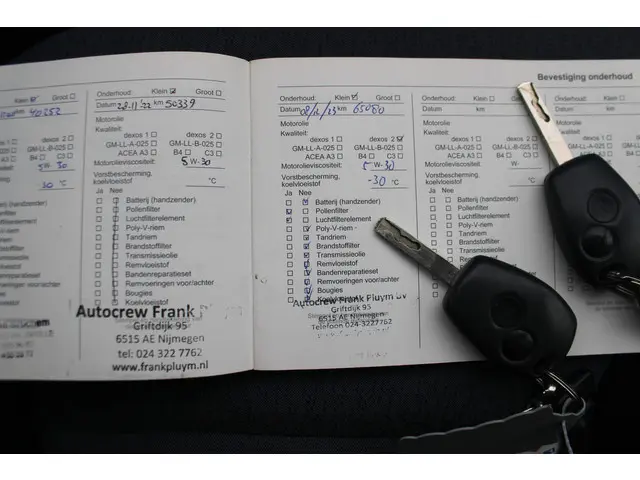 Klein Groot
km 40252
dexos 2
GM-LL-B-025
B4 C3
5W-30
-30 °C
Onderhoud: Klein Groot
Datum 28-11-'22 km 50339
Motorolie
Kwaliteit:
dexos 1 dexos 2
GM-LL-A-025 GM-LL-B-025
ACEA A3 B4 C3
Motorolieviscositeit: 5W-30
Vorstbescherming,
koelvloeistof °C
Ja Nee
Batterij (handzender)
Pollenfilter
Luchtfilterelement
Poly-V-riem
Tandriem
Brandstoffilter
Transmissieolie
Remvloeistof
Bandenreparatieset
Remvoeringen voor/achter
Bougies
Autocrew Frank
Griftdijk 95
6515 AE Nijmegen
tel: 024 322 7762
www.frankpluym.nl
Onderhoud: Klein Groot
Datum km 65080
Motorolie
Kwaliteit:
dexos 1 dexos 2
GM-LL-A-025 GM-LL-B-025
ACEA A3 B4 C3
Motorolieviscositeit: 5W-30
Vorstbescherming,
koelvloeistof -30 °C
Ja Nee
Batterij (handzender)
Pollenfilter
Luchtfilterelement
Poly-V-riem
Tandriem
Brandstoffilter
Transmissieolie
Remvloeistof
Bandenreparatieset
Remvoeringen voor/achter
Bougies
Koelvloeistof
Autocrew Frank Pluym BV
Griftdijk 95
6515 AE Nijmegen
Telefoon 024-3227762
Bevestiging onderhoud
Onderhoud: Klein Groot
Datum km
Motorolie
Kwaliteit:
dexos 1 dexos 2
GM-LL-A-025 GM-LL-B-025
ACEA A3 B4 C3
Motorolieviscositeit: W-
Vorstbescherming,
koelvloeistof
Ja Nee
Batterij (handzender)
Pollenfilter
Luchtfilterelement
Poly-V-riem
Tandriem
Brandstoffilter
Transmissieolie
Remvloeistof
Onderhoud: Klein Groot
Datum km
dexos 2